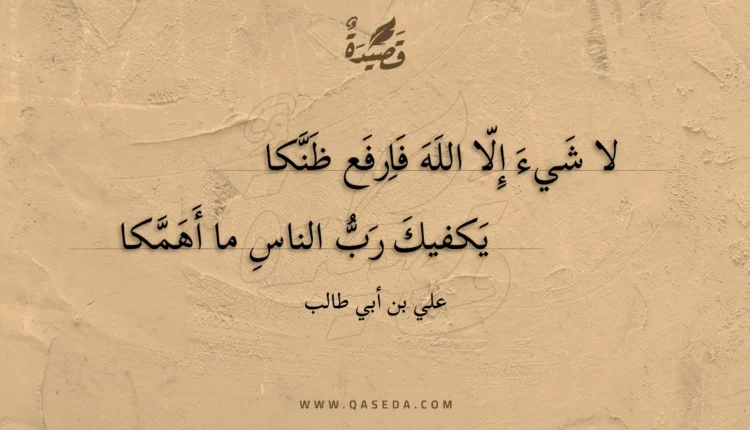 قَصِيدَةٌ
لا شَيءَ إِلّا اللَهَ فَاِرفَع ظَنَّكا
يَكفيكَ رَبُّ الناسِ ما أَهَمَّكا
علي بن أبي طالب
WWW.QASEDA.COM